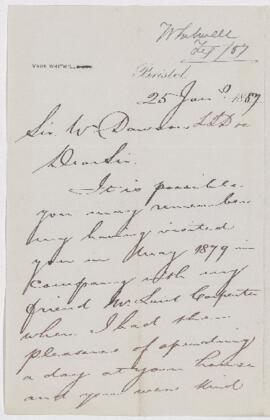 Whitwell
Feb/87
MARK WHITWILL
Bristol.
25 Jany 1887
Sir. W Dawson LLD &c
Dear Sir.
It is possible
you may remember
my having visited
you in May 1879 in
company with my
friend Mr Lant Carpenter
when I had the
pleasure of spending
a day at your house
and you were kind